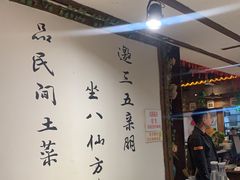 邀三五亲朋
坐八仙方
品民间土菜